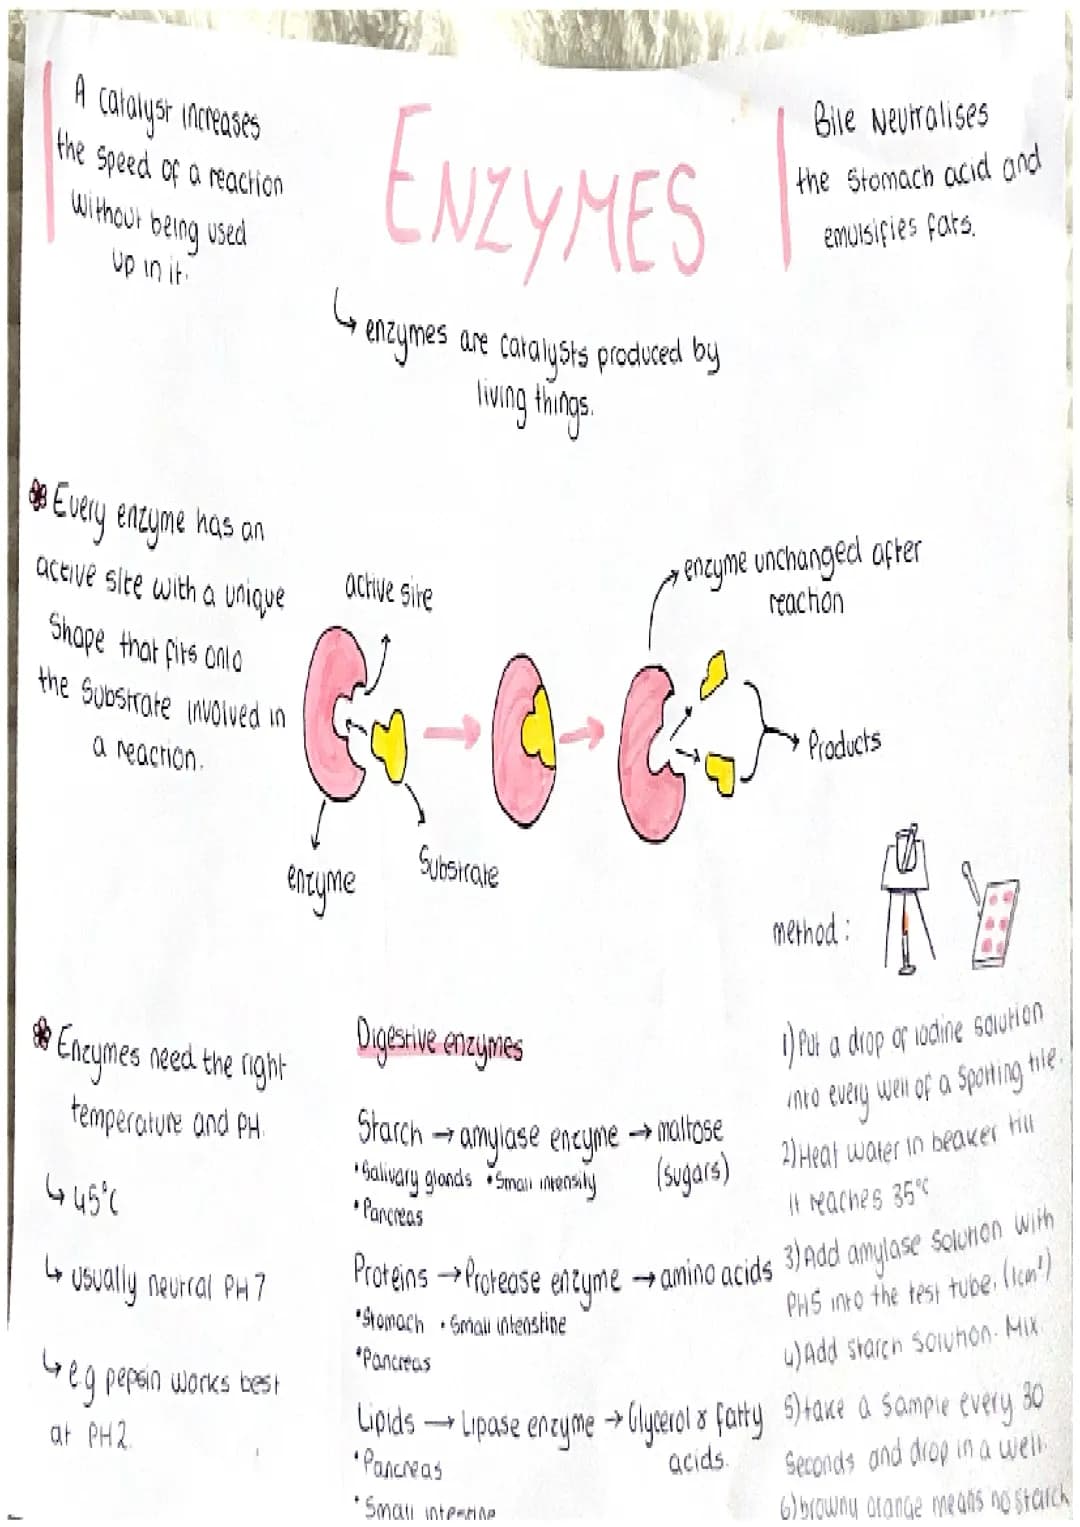 A catalyst increases
the speed of a reaction
without being used
up in it.
ENZYMES
Bile Neutralises
the stomach acid and
emulsifies fats.
↳ enzymes are catalysts produced by
living things.
Every enzyme has an
active site with a unique
shape that fits onto
the substrate involved in
a reaction.
active site
enzyme
Substrate
enzyme unchanged after
reaction
Products
method:
Enzymes need the right
temperature and PH.
↳ 45°C
↳ usually neutral PH 7
↳ e.g pepsin works best
at PH2.
Digestive enzymes
Starch → amylase enzyme → maltose
(sugars)
•Salivary glands •Small intensity
•Pancreas
Proteins → Protease enzyme → amino acids
•Stomach •Small intenstine
•Pancreas
Lipids → Lipase enzyme → Glycerol & fatty
acids.
•Pancreas
•Small intestine
1) Put a drop of iodine solution
into every well of a Sporting tile.
2) Heat water in beaker till
it reaches 35°C
3) Add amylase solution with
PH5 into the test tube. (1cm³)
4) Add starch solution. Mix.
5) take a sample every 30
seconds and drop in a well.
6) browny orange means no starch